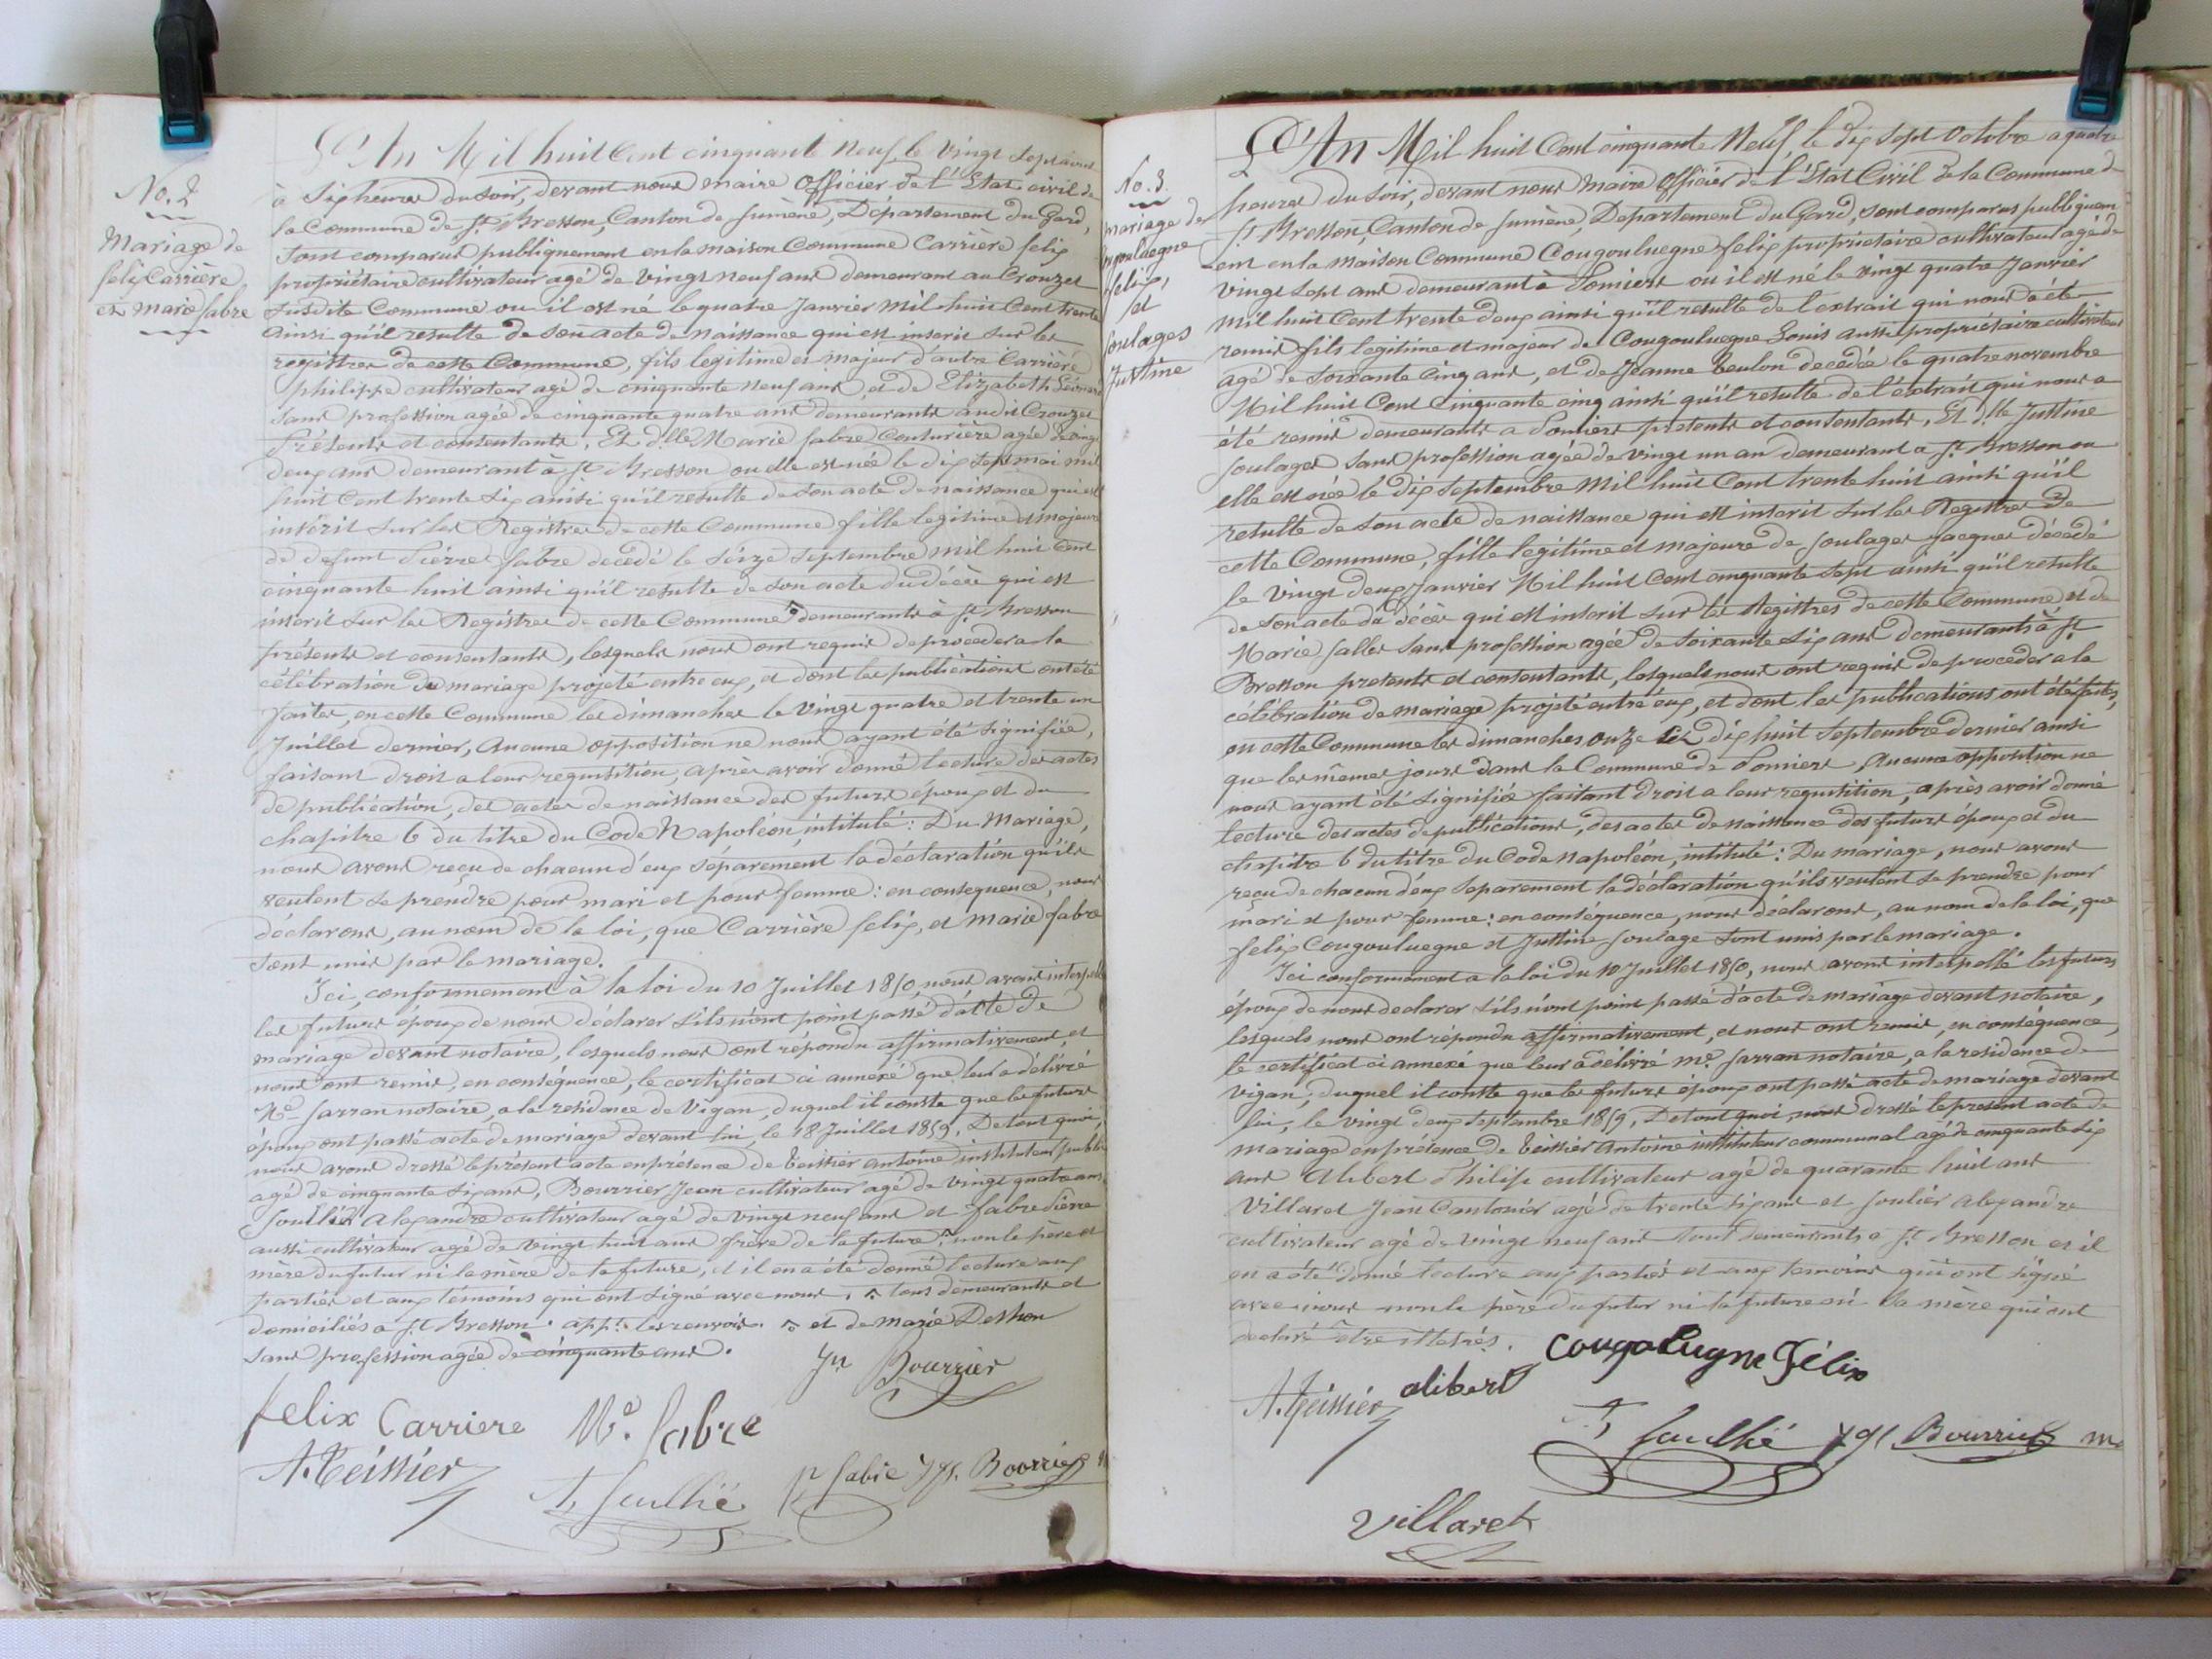 No. 2
Mariage de
felix Carrière
et Marie fabre
L'An Mil huit Cent cinquante Neuf, le Vingt Sept aout
à Six heures du soir, devant nous maire Officier de l'Etat civil de
la Commune de St. Bresson, Canton de Sumène, Département du Gard,
sont comparus publiquement en la maison Commune Carrière felix
propriétaire cultivateur agé de vingt neuf ans demeurant au Crouzet
susdite Commune ou il est né le quatre Janvier mil huit Cent trente
ainsi qu'il resulte de son acte de naissance qui est inscrit sur les
registres de cette Commune, fils legitime et majeur d'autre Carrière
philippe cultivateur agé de cinquante neuf ans, et de Elizabeth
sans profession agée de cinquante quatre ans demeurants audit Crouzet
Présents et consentants, Et dlle Marie fabre Couturière agée de vingt
deux ans demeurant à St Bresson ou elle est née le dix sept mai mil
huit Cent trente six ainsi qu'il resulte de son acte de naissance qui est
inscrit sur les Registres de cette Commune fille legitime et majeure
de defunt Pierre fabre décédé le Seize Septembre mil huit Cent
cinquante huit ainsi qu'il resulte de son acte du décès qui est
inscrit sur les Registres de cette Commune ^ demeurants à St. Bresson
présents et consentants, lesquels nous ont requis de proceder a la
célébration du mariage projeté entre eux, et dont les publications ont été
faites, en cette Commune les dimanches le Vingt quatre et trente un
Juillet dernier, Aucune opposition ne nous ayant été signifiée,
faisant droit a leur requisition, après avoir donné lecture des actes
de publication, des actes de naissance des futurs époux et du
chapitre 6 du titre du Code Napoléon, intitulé: Du Mariage,
nous avons reçu de chacun d'eux séparement la déclaration qu'ils
veulent se prendre pour mari et pour femme: en consequence, nous
déclarons, au nom de la loi, que Carrière felix, et Marie fabre
sont unis par le mariage.
Ici, conformement à la loi du 10 Juillet 1850, nous avons interpellé
les futurs epoux de nous déclarer s'ils n'ont point passé d'acte de
mariage devant notaire, lesquels nous ont repondu affirmativement, et
nous ont remis, en conséquence, le certificat ci annexé que leur a délivré
Me Sarran notaire, a la residence de Vigan, duquel il conste que les futurs
époux ont passé acte de mariage devant lui, le 18 Juillet 1859, De tout quoi,
nous avons dressé le présent acte en présence de Teissier antoine instituteur public
agé de cinquante six ans, Bourrier Jean cultivateur agé de vingt quatre ans
Soullié Alexandre cultivateur agé de vingt neuf ans et fabre Pierre
aussi cultivateur agé de vingt huit ans frère de la future ^ non le père et
mère du futur ni la mère de la future, et il en a été donné lecture aux
parties et aux témoins qui ont signé avec nous. ^ tous demeurants et
domiciliés a St Bresson. app. les renvois. ^ et de marie Deshon
sans profession agée de cinquante ans.
Jn Bourrier
felix Carriere Me. fabre
A. Teissier
A. Soullié P. fabre Bourrier
No. 3.
mariage de
Cougouluegne
felix,
et
Soulages
Justine
L'An Mil huit Cent cinquante Neuf, le dix sept Octobre a quatre
heures du soir, devant nous maire Officier de l'Etat Civil de la Commune de
St. Bresson, Canton de Sumène, Departement du Gard, sont comparus publiquem
ent en la maison Commune Cougouluegne felix propriétaire cultivateur agé de
vingt sept ans demeurant à Pomiers ou il est né le vingt quatre Janvier
mil huit Cent trente deux ainsi qu'il resulte de l'extrait qui nous a été
remis fils legitime et majeur de Cougouluegne Louis aussi propriétaire cultivateur
agé de soixante cinq ans, et de Jeanne Teulon decedée le quatre novembre
Mil huit Cent Cinquante cinq ainsi qu'il resulte de l'extrait qui nous a
été remis demeurants a Pomiers présents et consentants, Et dlle Justine
Soulages sans profession agée de vingt un an demeurant a St. Bresson ou
elle est née le dix septembre Mil huit Cent trente huit ainsi qu'il
resulte de son acte de naissance qui est inscrit sur les Registres de
cette Commune, fille legitime et majeure de Soulages Jacques décédé
le Vingt deux Janvier Mil huit Cent cinquante Sept ainsi qu'il resulte
de son acte du décès qui est inscrit sur les Registres de cette Commune et de
Marie Salles sans profession agée de Soixante Six ans demeurants à St.
Bresson présents et consentants, lesquels nous ont requis de proceder a la
célébration de mariage projeté entre eux, et dont les publications ont été faites,
en cette Commune les dimanches onze et dix huit Septembre dernier ainsi
que les mêmes jours dans la Commune de Pomiers, Aucune opposition ne
nous ayant été signifiée faisant droit a leur requisition, après avoir donné
lecture des actes de publications, des actes de naissance des futurs époux et du
chapitre 6 du titre du Code Napoléon, intitulé: Du mariage, nous avons
reçu de chacun d'eux separement la déclaration qu'ils veulent se prendre pour
mari et pour femme: en conséquence, nous déclarons, au nom de la loi, que
felix Cougouluegne et Justine Soulage sont unis par le mariage.
Ici conformement a la loi du 10 Juillet 1850, nous avons interpellé les futurs
époux de nous declarer s'ils n'ont point passé d'acte de mariage devant notaire,
lesquels nous ont répondu affirmativement, et nous ont remis, en conséquence,
le certificat ci annexé que leur a délivré me. Sarran notaire, a la residence de
Vigan, duquel il conste que les futurs époux ont passé acte de mariage devant
lui, le vingt deux Septembre 1859, De tout quoi, nous dressé le present acte de
mariage en présence de Teissier Antoine instituteur communal agé de cinquante six
ans Alibert Philipe cultivateur agé de quarante huit ans
Villaret Jean Cantonier agé de trente six ans et Soulié Alexandre
cultivateur agé de vingt neuf ans tous demeurants a St. Bresson et il
en a été donné lecture aux parties et aux temoins qui ont signé
avec nous non le père du futur ni la future ni sa mère qui ont
declaré être illetrés.
Cougolugne Félix
A. Teissier alibert
A Soullié Bourrier m
Villaret